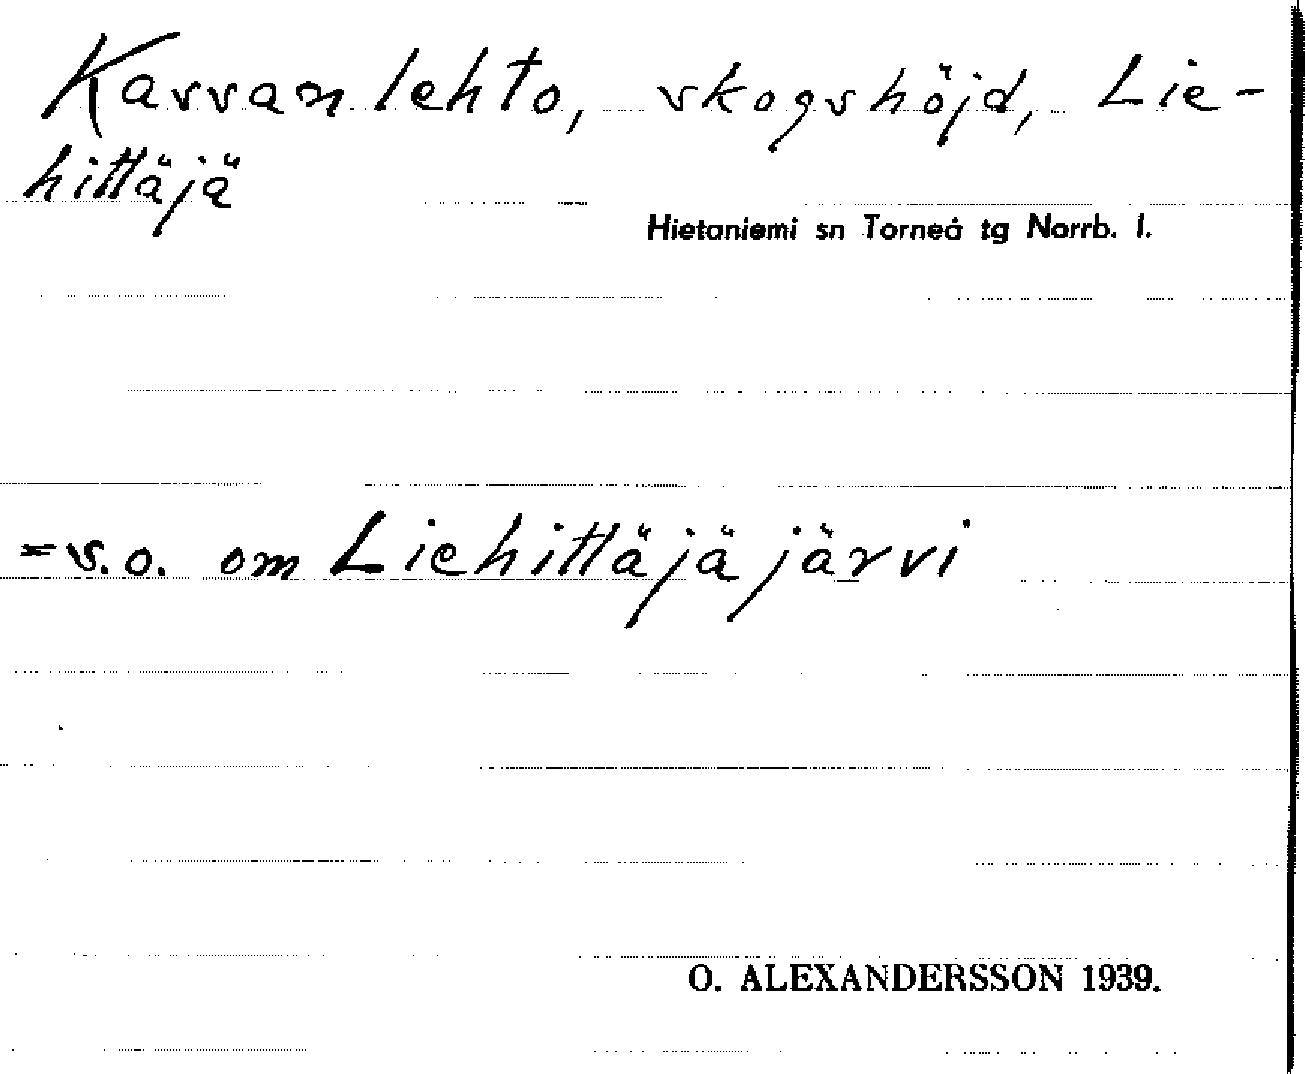 Kassanlehto, skogshöjd, Lie-
hittäjä
Hietaniemi sn Torneå tg Norrb. l.
= s.o. om Liehittäjäjärvi
O. ALEXANDERSSON 1939.